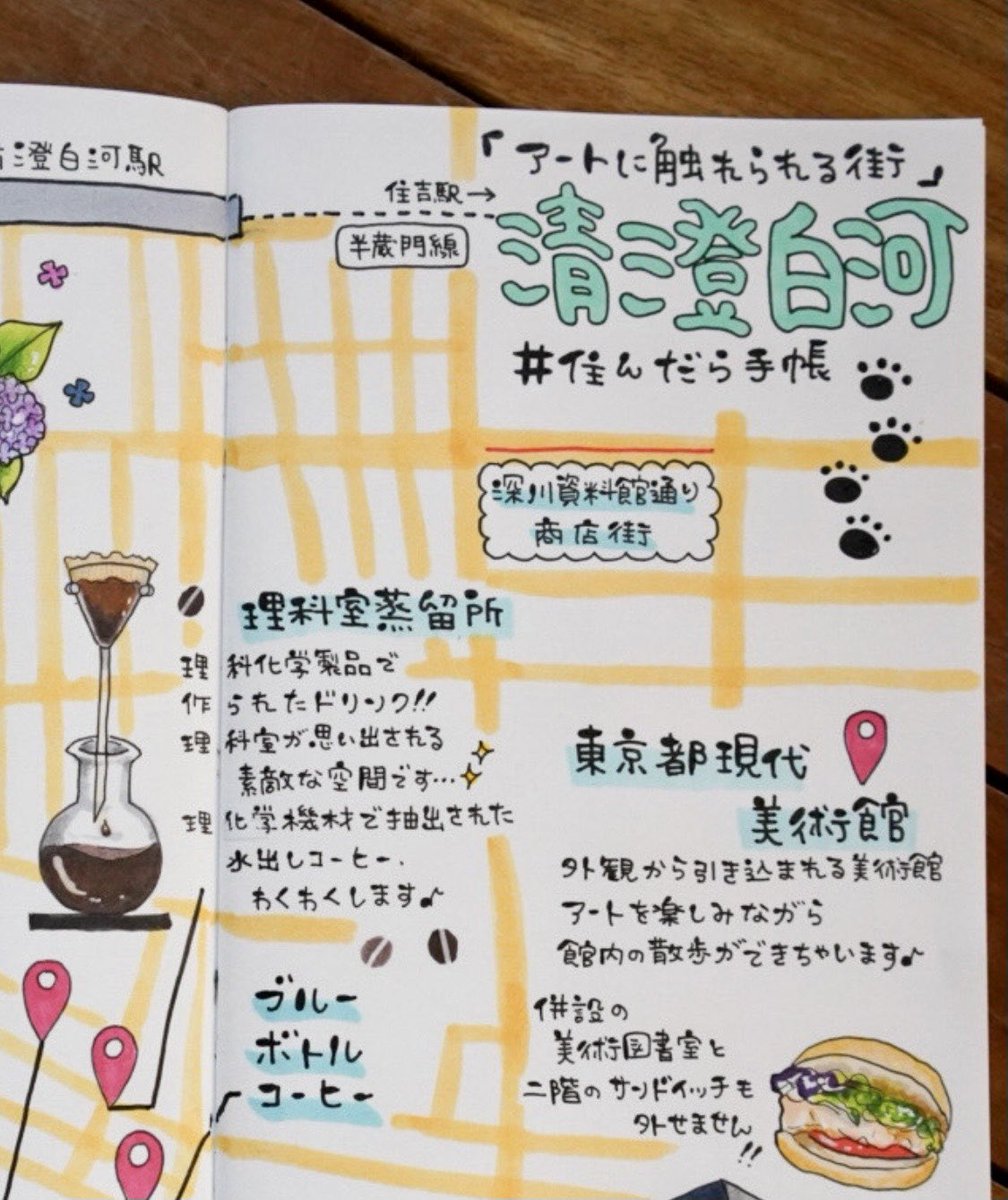 清澄白河駅
「アートに触れられる街」
住吉駅→
清澄白河
半蔵門線
#住んだら手帳
深川資料館通り
商店街
理科室蒸留所
理科化学製品で
作られたドリンク!!
理科室が思い出される
素敵な空間です…
理化学機材で抽出された
水出しコーヒー.
わくわくします♪
ブルー
ボトル
コーヒー
東京都現代
美術館
外観から引き込まれる美術館
アートを楽しみながら
館内の散歩ができちゃいます♪
併設の
美術図書室と
二階のサンドイッチも
外せません
!!